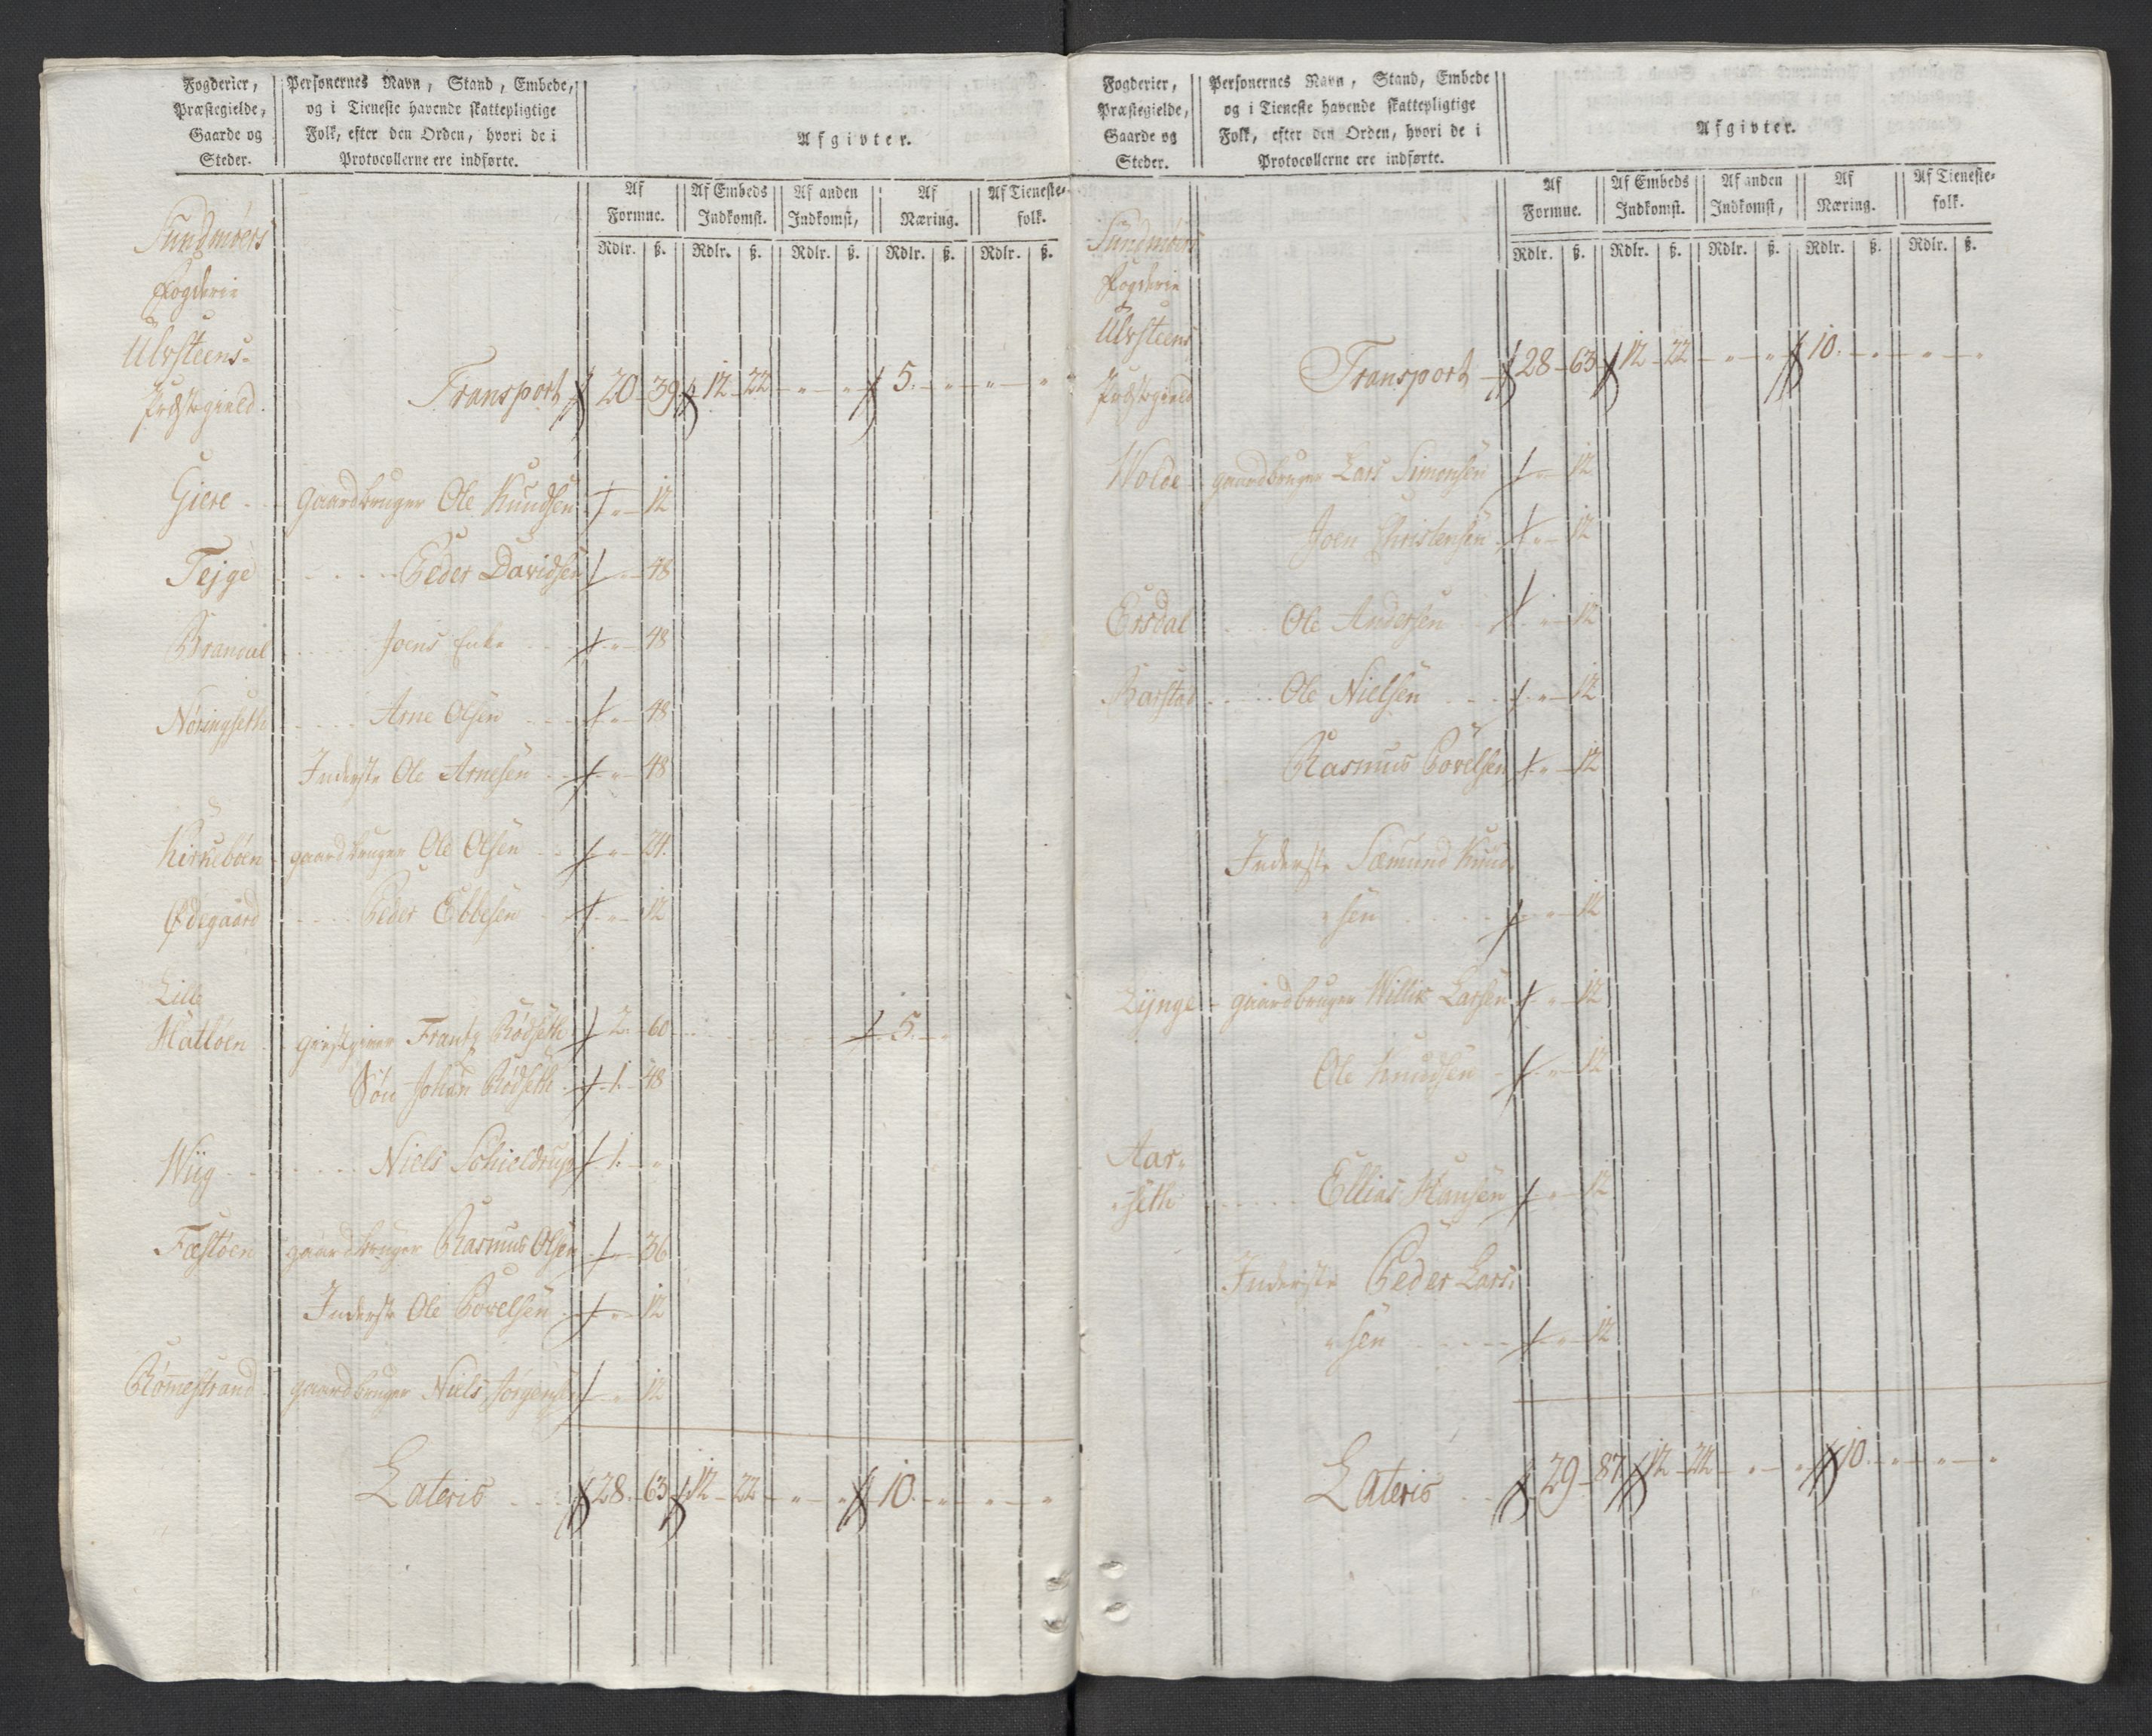 Fogderier, Præstegielde, Gaarde og Steder.
Personernes Navn, Stand, Embede, og i Tieneste havende skattepligtige Folk, efter den Orden, hvori de i Protocollerne ere indførte.
Afgivter.
Af Formue. Af Embeds Indkomst. Af anden Indkomst, Af Næring. Af Tieneste-folk.
Rdlr. ß. Rdlr. ß. Rdlr. ß. Rdlr. ß. Rdlr. ß.
Sundmøers
Fogderie
Ulvsteens-
Præstegield.
Transport 20 - 39 12 - 22 - " - " 5. - " - " - "
Giere - gaardbruger Ole Knudsen " - 12
Tejge - Peder Davidsen " - 48
Brandal Joens Enke " - 48
Nøringseth Arne Olsen " - 48
Inderste Ole Arnesen " - 48
Kirkebøen gaardbruger Ole Olsen " - 24.
Ødegaard Peder Ebbesen " - 12
Lille
Hatløen giestgiver Frantz Rødseth 2. - 60 5. - "
Søn Johan Rødseth 1. - 48
Wiig Niels Schieldrup 1. - "
Fæstøen gaardbruger Rasmus Olsen " - 36
Inderste Ole Povelsen " - 12
Rømestrand gaardbruger Niels Jørgensen " - 12
Lateris 28. - 63 12 - 22 - " - " 10. - " - " - "
Fogderier, Præstegielde, Gaarde og Steder.
Personernes Navn, Stand, Embede og i Tieneste havende skattepligtige Folk, efter den Orden, hvori de i Protocollerne ere indførte.
Afgivter.
Af Formue. Af Embeds Indkomst. Af anden Indkomst, Af Næring. Af Tieneste-folk.
Rdlr. ß. Rdlr. ß. Rdlr. ß. Rdlr. ß. Rdlr. ß.
Sundmøers
Fogderie
Ulvsteens
Præstegield
Transport 28 - 63 12 - 22 - " - " 10. - " - " - "
Wolde - gaardbruger Lars Simonsen " - 12
Joen Christensen " - 12
Ersdal Ole Andersen " - 12
Barstad Ole Nielsen " - 12
Rasmus Povelsen " - 12
Inderste Sæmund Knud-
"sen " - 12
Lynge - gaardbruger Willik Larsen " - 12
Ole Knudsen " - 12
Aar-
"seth Ellias Hansen " - 12
Inderste Peder Lars-
"sen " - 12
Lateris 29 - 87 12 - 22 - " - " 10. - " - " - "